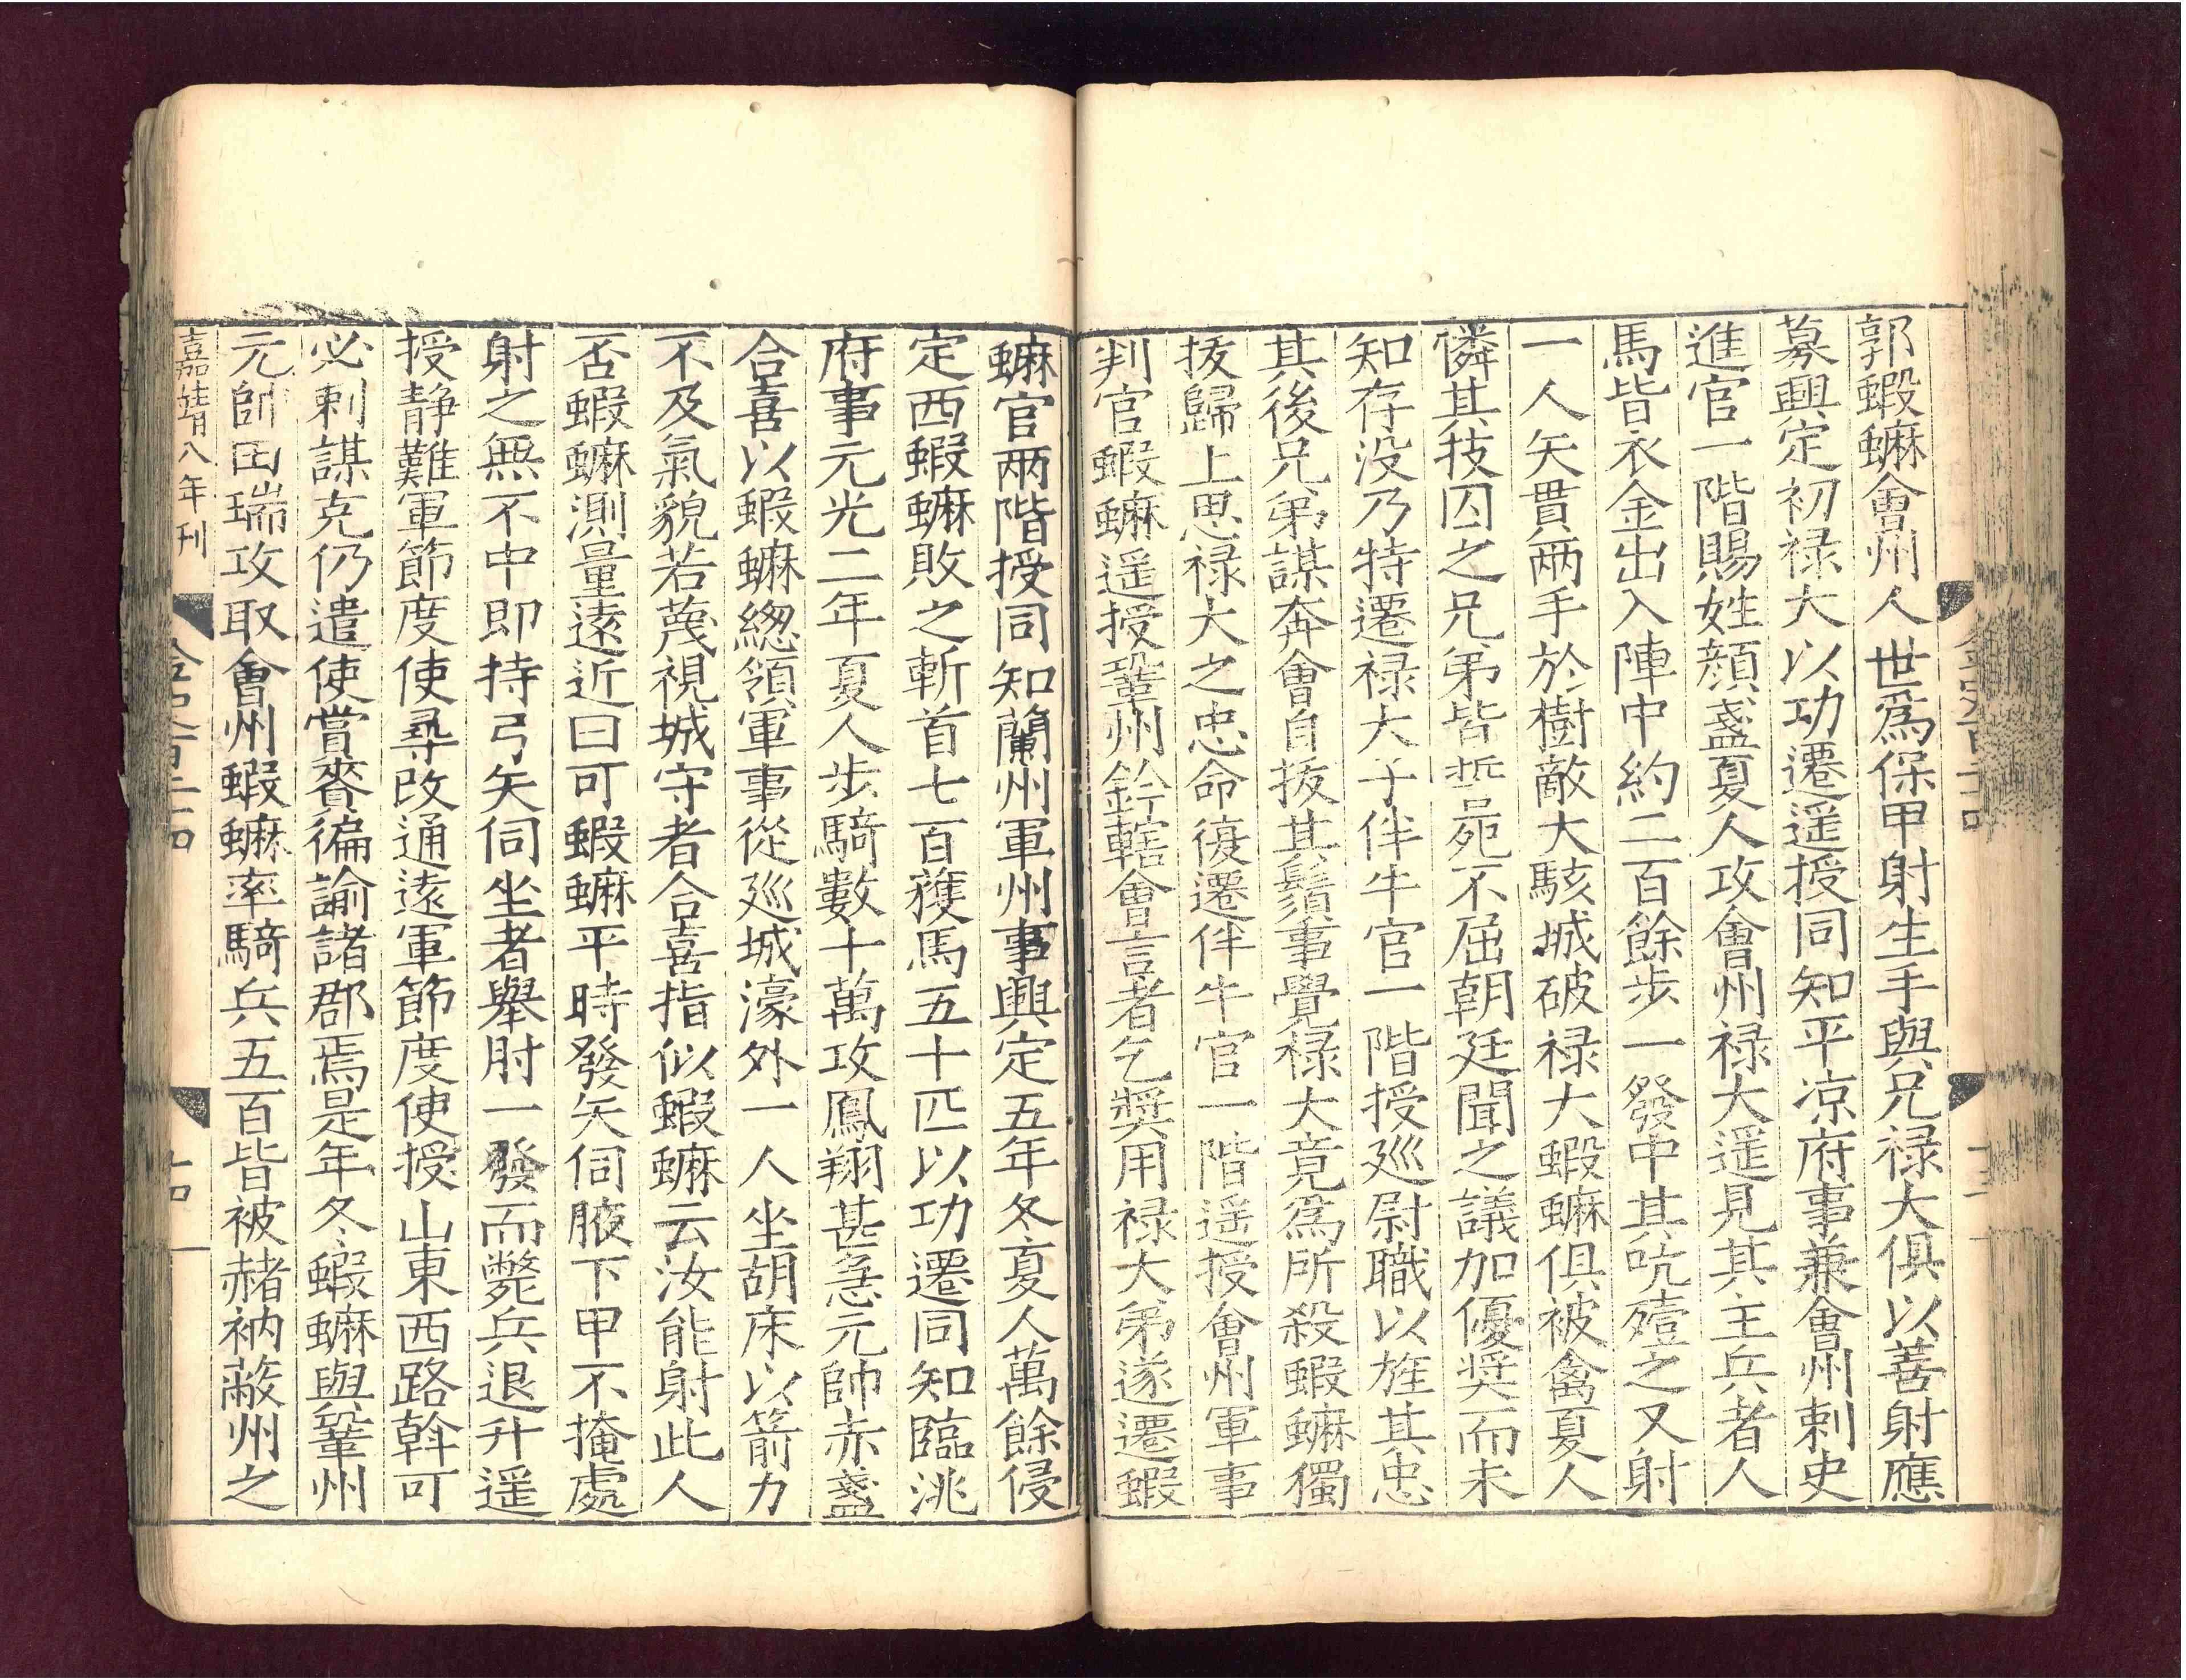 郭蝦䗫會州人世為保甲射生手與兄祿大俱以善射應
募興定初祿大以功遷遥授同知平凉府事兼會州刺史
進官一階賜姓顔盞夏人攻會州祿大遥見其主兵者人
馬皆衣金出入陣中約二百餘步一發中其吭殪之又射
一人矢貫兩手於樹敵大駭城破祿大蝦䗫俱被禽夏人
憐其技囚之兄弟皆誓死不屈朝廷聞之議加優奬而未
知存没乃特遷祿大子伴牛官一階授廵尉職以旌其忠
其後兄弟謀奔會自拔其鬚事覺祿大竟為所殺蝦䗫獨
拔歸上思祿大之忠命復遷伴牛官一階遥授會州軍事
判官蝦䗫遥授鞏州鈐轄會言者乞奬用祿大弟遂遷蝦
䗫官兩階授同知蘭州軍州事興定五年冬夏人萬餘侵
定西蝦䗫敗之斬首七百獲馬五十匹以功遷同知臨洮
府事元光二年夏人步騎數十萬攻鳳翔甚急元帥赤盞
合喜以蝦䗫緫領軍事從廵城濠外一人坐胡床以箭力
不及氣貌若蔑視城守者合喜指似蝦䗫云汝能射此人
否蝦䗫測量遠近曰可蝦䗫平時發矢伺腋下甲不掩處
射之無不中即持弓矢伺坐者舉肘一發而斃兵退升遥
授静難軍節度使尋改通遠軍節度使授山東西路斡可
必剌謀克仍遣使賞賚徧諭諸郡焉是年冬蝦䗫與鞏州
元帥田瑞攻取會州蝦䗫率騎兵五百皆被赭衲蔽州之
嘉靖八年刊